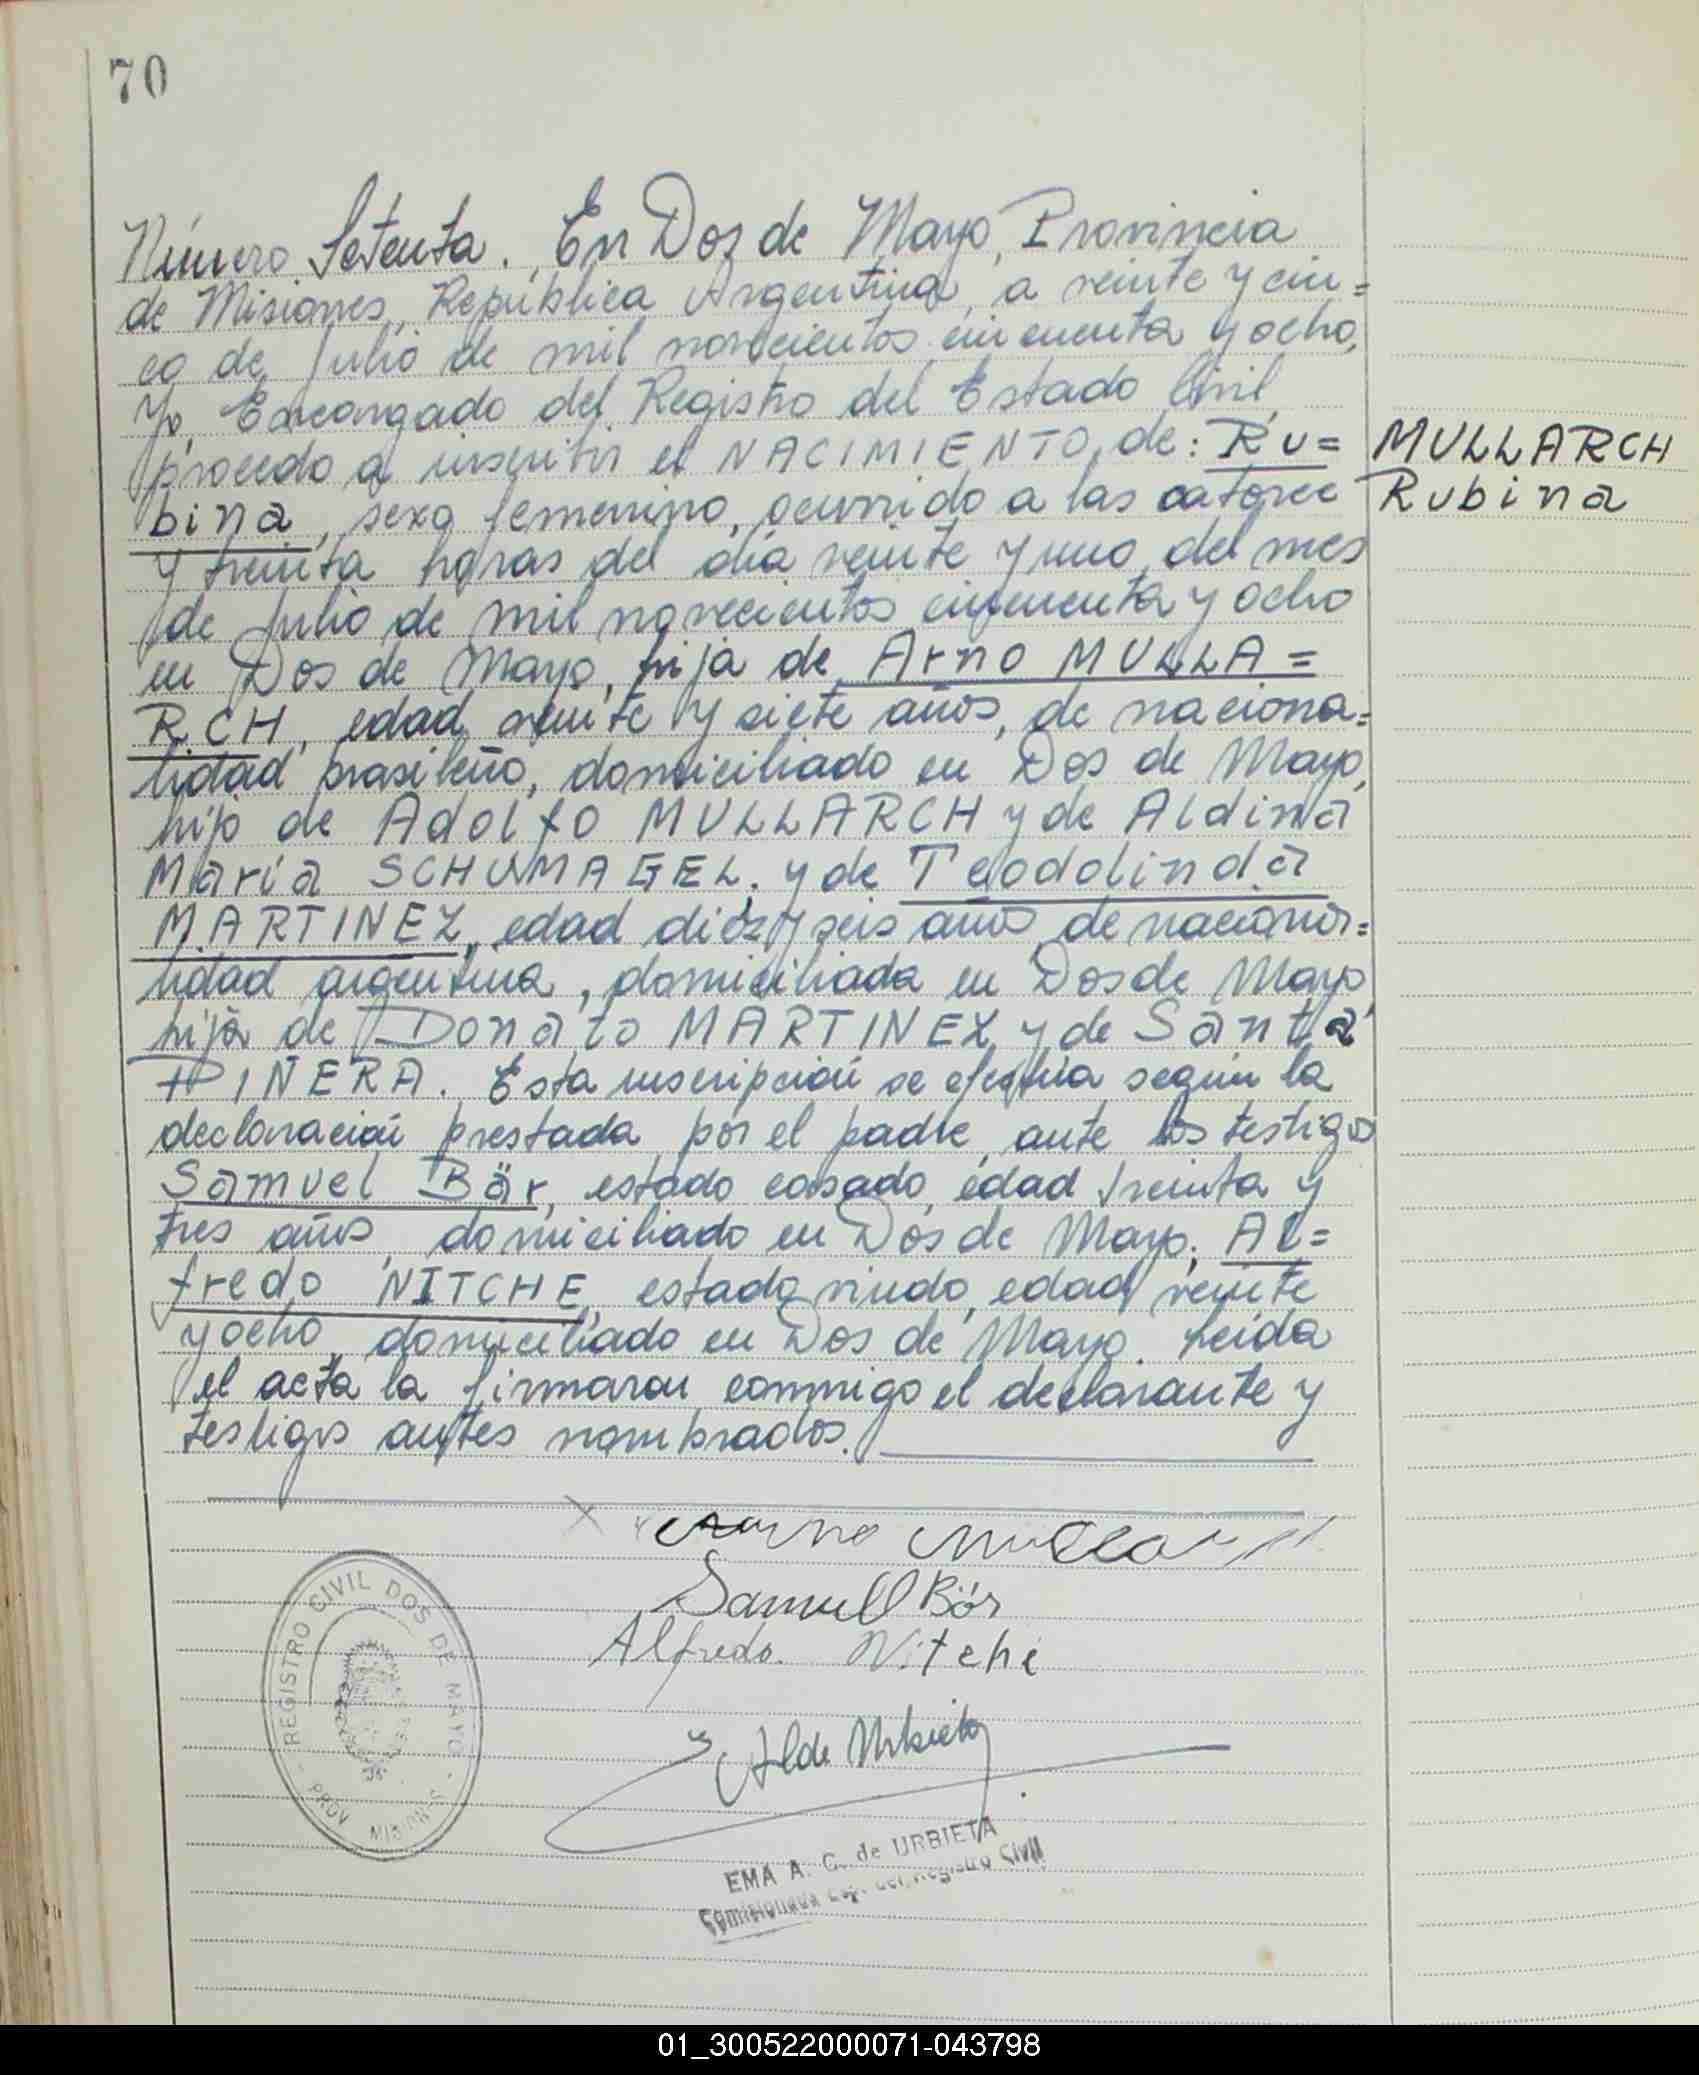 70
Número Setenta. En Dos de Mayo, Provincia
de Misiones, República Argentina, a veinte y cin=
co de Julio de mil novecientos cincuenta y ocho,
Yo, Encargado del Registro del Estado Civil
procedo a inscribir el NACIMIENTO de: Ru=
bina, sexo femenino, ocurrido a las catorce
y treinta horas del día veinte y uno del mes
de Julio de mil novecientos cincuenta y ocho
en Dos de Mayo, hija de Arno MULLA=
RCH, edad veinte y siete años, de naciona=
lidad brasileño, domiciliado en Dos de Mayo,
hijo de Adolfo MULLARCH y de Aldina
María SCHUMAGEL. y de Teodolinda
MARTINEZ, edad diez y seis años de naciona=
lidad argentina, domiciliada en Dos de Mayo
hija de Donato MARTINEZ y de Santa
PIÑERA. Esta inscripción se efectúa según la
declaración prestada por el padre ante los testigos
Samuel Bär, estado casado, edad treinta y
tres años, domiciliado en Dos de Mayo; Al=
fredo NITCHE, estado viudo, edad veinte
y ocho, domiciliado en Dos de Mayo. Leida
el acta la firmaron conmigo el declarante y
testigos antes nombrados.
MULLARCH
Rubina
X Arno Mullarch
Samuel Bär
Alfredo Nitche
REGISTRO CIVIL DOS DE MAYO - PROV. MISIONES -
EMA A. C. de URBIETA
Comisionada del Registro Civil
01_300522000071-043798